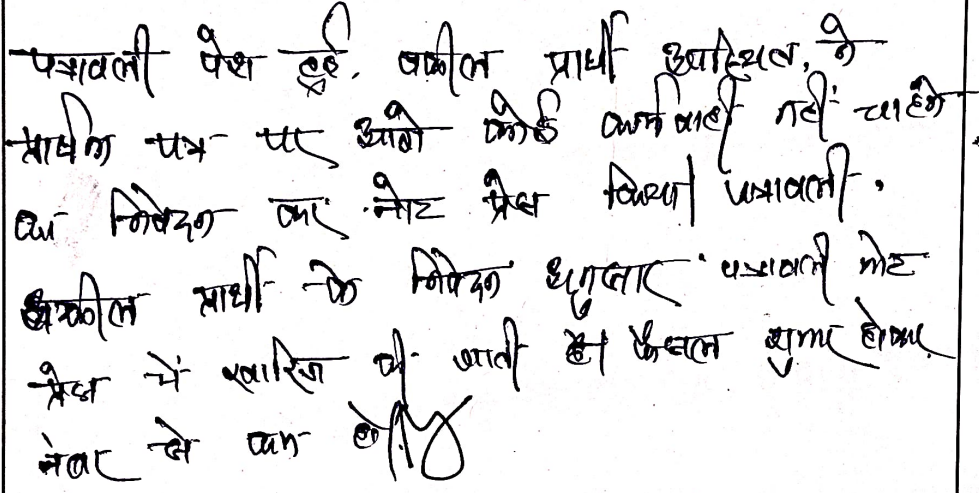 पत्रावली पेश हुई. वकील प्रार्थी उपस्थित, ने
प्रार्थना पत्र पर आगे कोई कार्यवाही नहीं चाहने
का निवेदन कर नोट प्रेस किया। पत्रावली,
वकील प्रार्थी के निवेदन अनुसार पत्रावली नोट
प्रेस में खारिज की जाती है। फैसल शुमार होकर
नंबर से कम हो